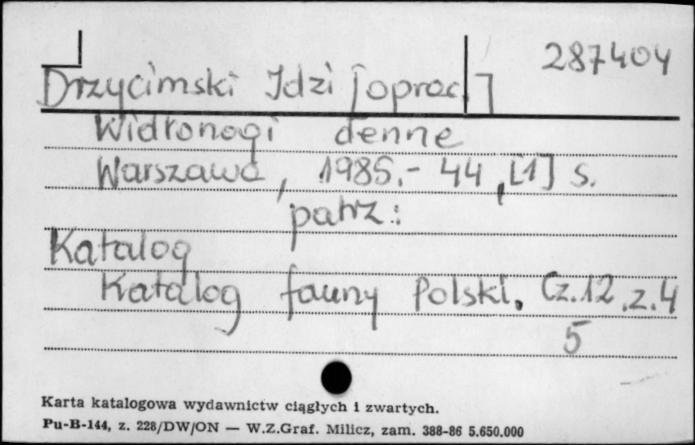 287404
Drzycimski Idzi [oprac.]
Widłonogi denne
Warszawa, 1985.- 44, [1] s.
patrz:
Katalog
Katalog fauny Polski. Cz.12, z.4
5
Karta katalogowa wydawnictw ciągłych i zwartych.
Pu-B-144, z. 228/DW/ON — W.Z.Graf. Milicz, zam. 388-86 5.650.000